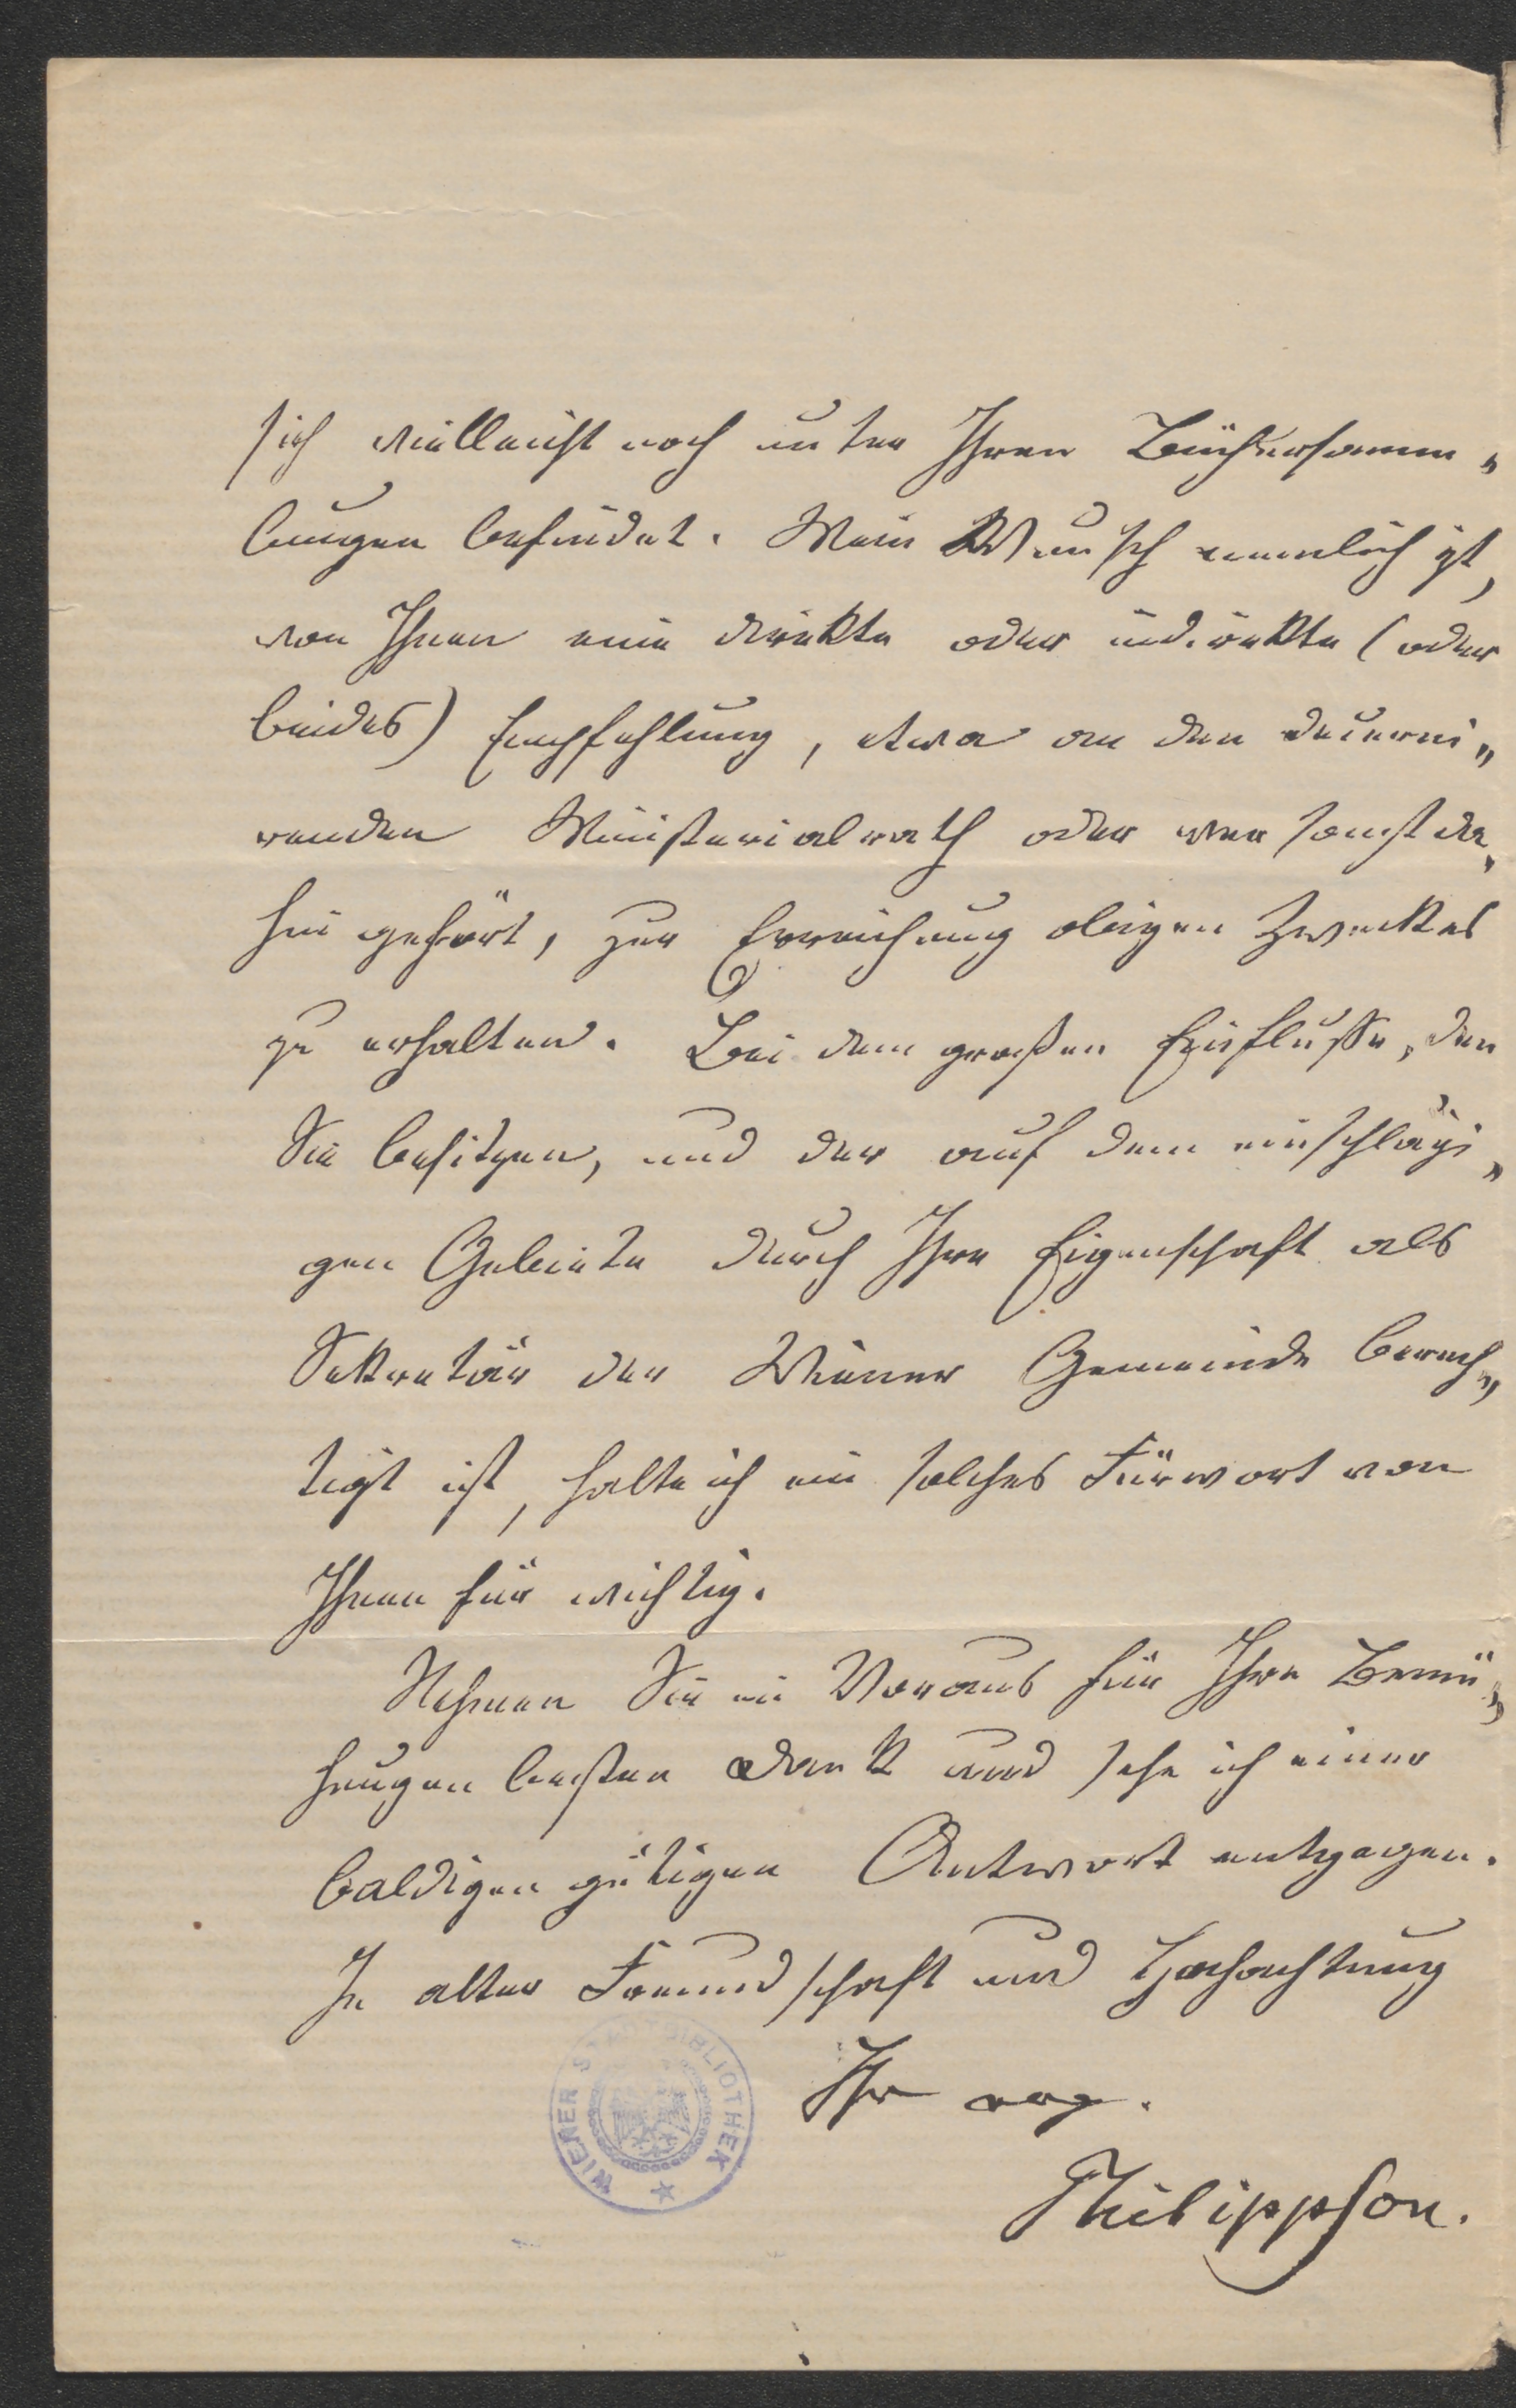 sich vielleicht noch unter Ihren Büchersamm„
lungen befindet. Mein Wunsch nemlich ist,
von Ihnen eine direkte oder indirekte (oder
beides) Empfehlung, etwa an den decerni„
renden Ministerialrath oder wer sonst da„
hin gehört, zur Erreichung obigen Zweckes
zu erhalten. Bei dem großen Einflusse, den
Sie besitzen, und der auf dem einschlägi„
gen Gebiete durch Ihre Eigenschaft als
Sekretär der Wiener Gemeinde berech„
tigt ist, halte ich ein solches Fürwort von
Ihnen für wichtig.
Nehmen Sie im Voraus für Ihre Bemü„
hungen besten Dank und sehe ich einer
baldigen gütigen Antwort entgegen.
In alter Freundschaft und Hochachtung
Ihr erg.
Philippson.
WIENER STADTBIBLIOTHEK